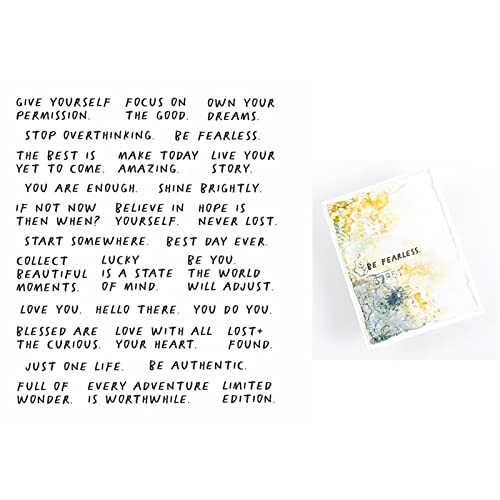 GIVE YOURSELF PERMISSION.
FOCUS ON THE GOOD.
OWN YOUR DREAMS.
STOP OVERTHINKING.
BE FEARLESS.
THE BEST IS YET TO COME.
MAKE TODAY AMAZING.
LIVE YOUR STORY.
YOU ARE ENOUGH.
SHINE BRIGHTLY.
IF NOT NOW THEN WHEN?
BELIEVE IN YOURSELF.
HOPE IS NEVER LOST.
START SOMEWHERE.
BEST DAY EVER.
COLLECT BEAUTIFUL MOMENTS.
LUCKY IS A STATE OF MIND.
BE YOU. THE WORLD WILL ADJUST.
LOVE YOU.
HELLO THERE.
YOU DO YOU.
BLESSED ARE THE CURIOUS.
LOVE WITH ALL YOUR HEART.
LOST+ FOUND.
JUST ONE LIFE.
BE AUTHENTIC.
FULL OF WONDER.
EVERY ADVENTURE IS WORTHWHILE.
LIMITED EDITION.
BE FEARLESS.